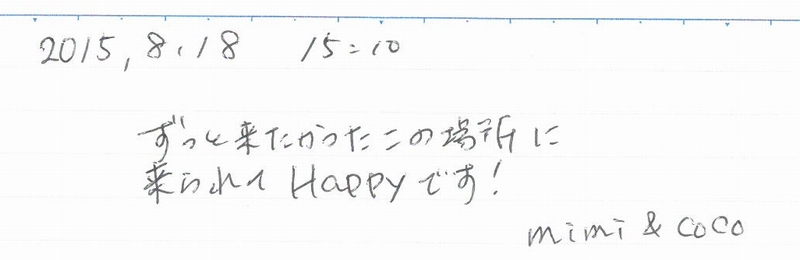 2015, 8, 18 15:10
ずっと来たかったこの場所に
来られて Happyです!
mimi & coco